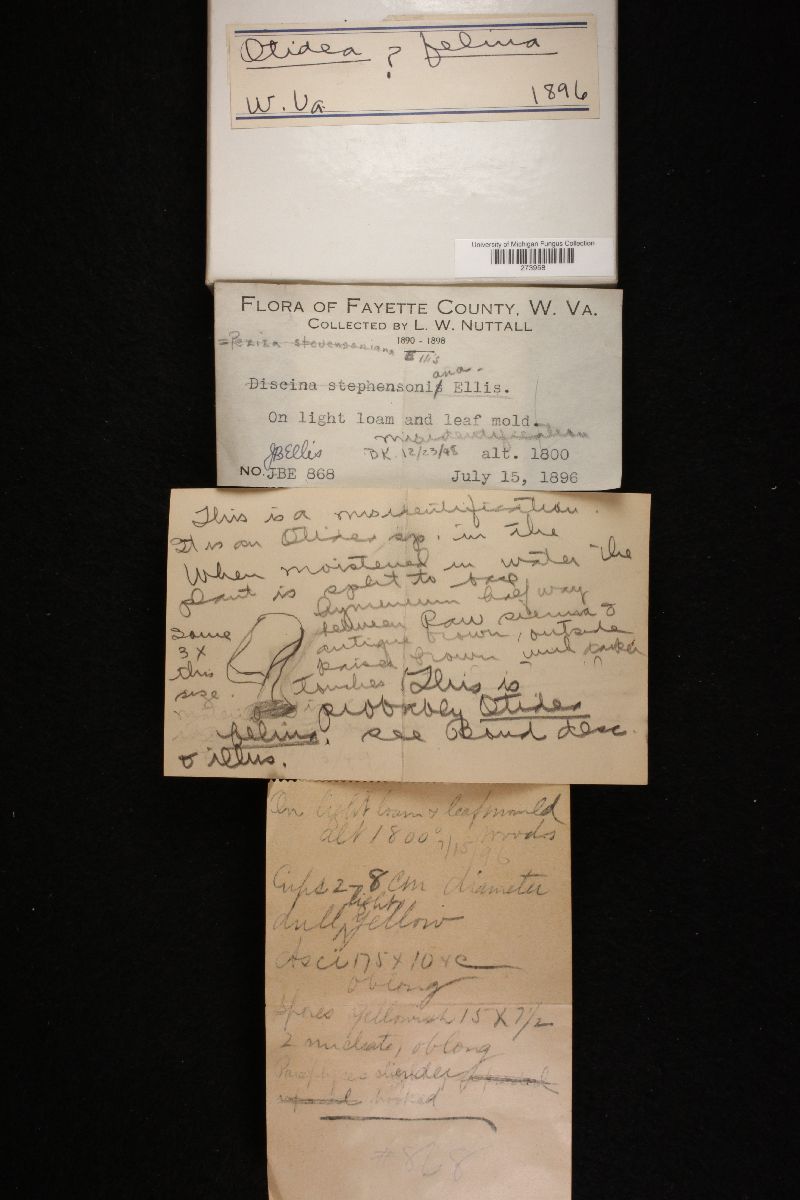 Otidea ? felina
W. Va. 1896
University of Michigan Fungus Collection
273958
FLORA OF FAYETTE COUNTY, W. VA.
COLLECTED BY L. W. NUTTALL
1890 - 1898
=Peziza stevensoniana Ellis
ana-
Discina stephensonis Ellis.
On light loam and leaf mold.
misidentification
JBEllis DK. 12/23/48 alt. 1800
NO. JBE 868 July 15, 1896
This is a misidentification.
It is an Otidea sp. in the
When moistened in water the
plant is split to base
Hymenium half way
between Raw sienna &
antique brown, outside
brown with darker
touches
Some
3 X
this
size.
(This is
probably Otidea
felina. see Boud desc.
& illus.
On light loam & leafmould
alt 1800° woods
7/15/96
Cups 2-8 cm diameter
light
dull yellow
Asci 175 x 10
oblong
Spores yellowish 15 X 7 1/2
2 nucleate, oblong
Paraphyses slender
hooked
#868